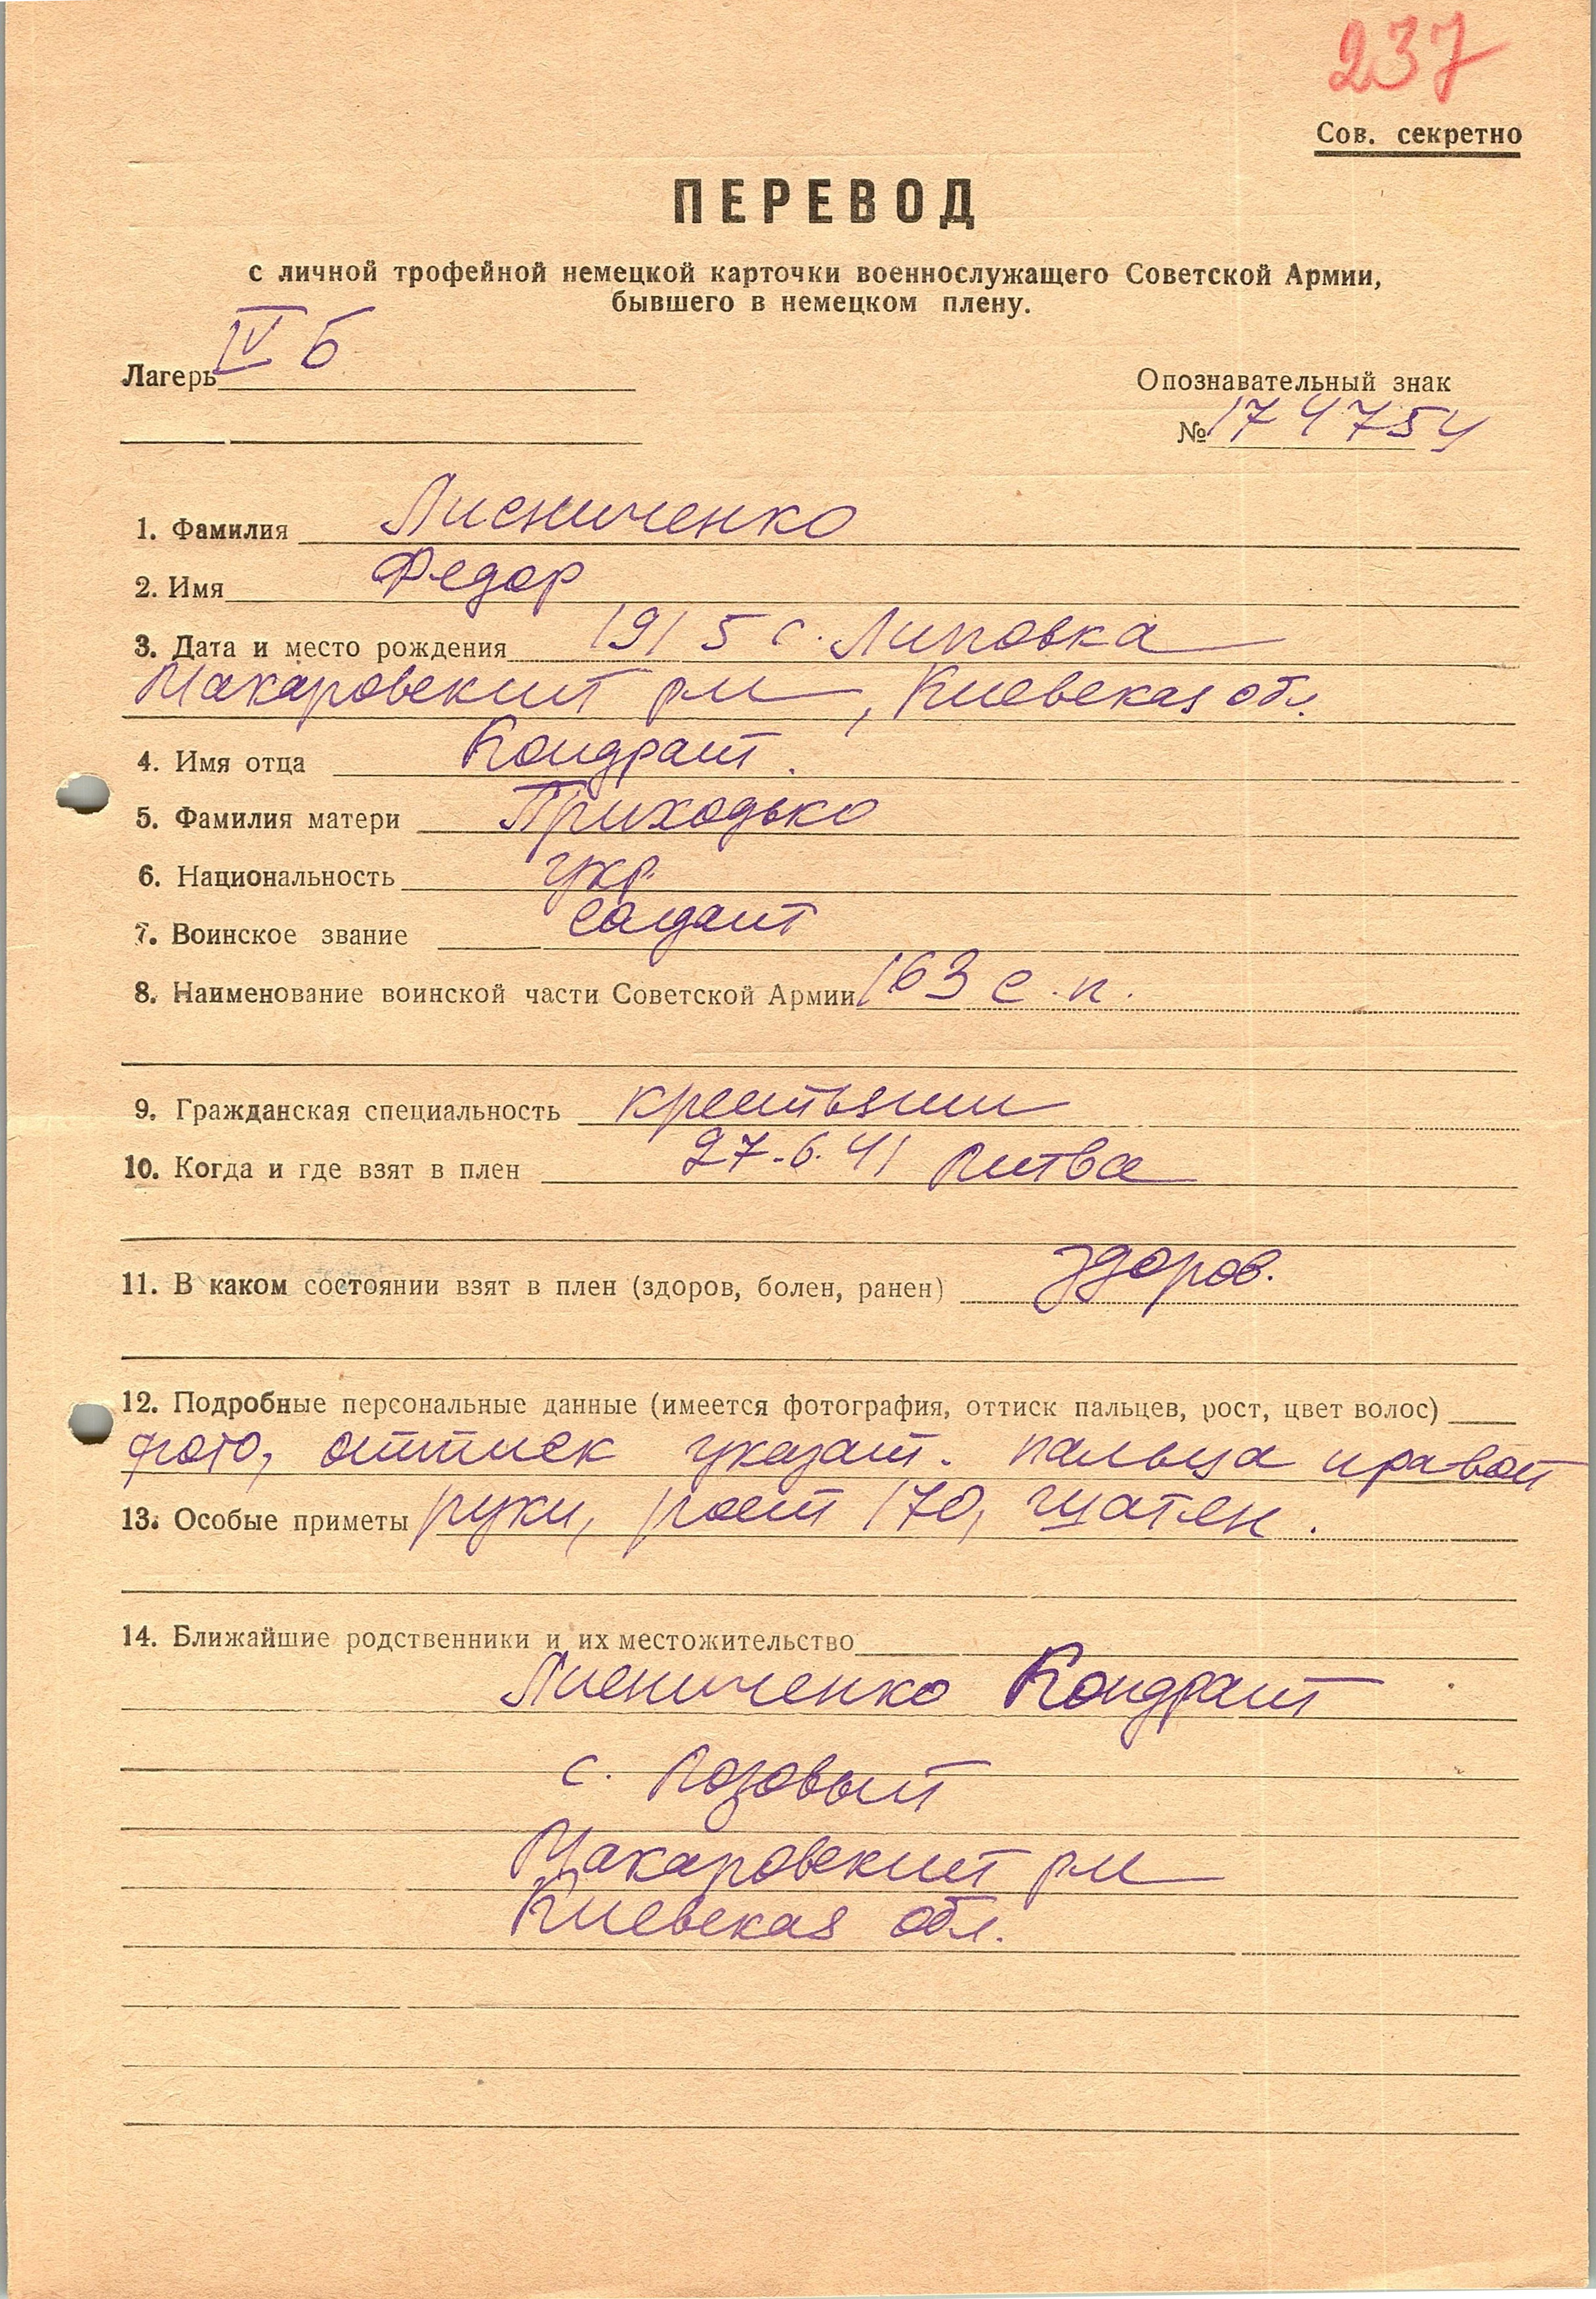 237
Сов. секретно
ПЕРЕВОД
с личной трофейной немецкой карточки военнослужащего Советской Армии,
бывшего в немецком плену.
Лагерь IV Б
Опознавательный знак
№ 174754
1. Фамилия Лисниченко
2. Имя Федор
3. Дата и место рождения 1915 с. Липовка
Макаровский р-н, Киевская обл.
4. Имя отца Кондрат.
5. Фамилия матери Приходько
6. Национальность укр.
7. Воинское звание солдат
8. Наименование воинской части Советской Армии 163 с.п.
9. Гражданская специальность крестьянин
10. Когда и где взят в плен 27.6.41 Литва
11. В каком состоянии взят в плен (здоров, болен, ранен) здоров.
12. Подробные персональные данные (имеется фотография, оттиск пальцев, рост, цвет волос)
фото, оттиск указат. пальца правой
13. Особые приметы руки, рост 170, шатен.
14. Ближайшие родственники и их местожительство
Лисниченко Кондрат
с.
Макаровский р-н
Киевская обл.